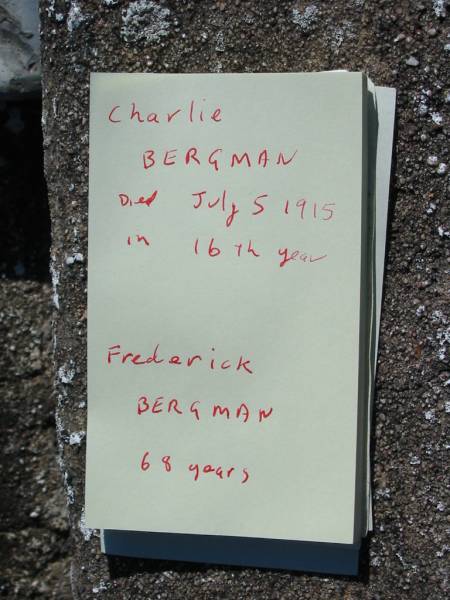 Charlie
BERGMAN
Died July 5 1915
in 16th year
Frederick
BERGMAN
68 years